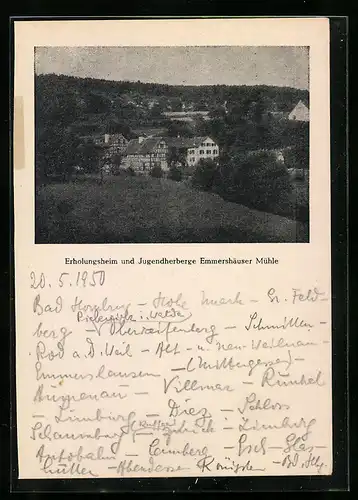 Erholungsheim und Jugendherberge Emmershäuser Mühle
20.5.1950
Bad Homburg - Hohe Mark - Gr. Feld-
berg - Oberreifenberg - Schmitten -
Rod a.d. Weil - Alt- u. Neu-Weilnau -
Emmershausen -
Villmar - Runkel
- Limburg - Diez - Schloss
Schaumburg - Limburg -
Autobahn - Camberg - Esch - Glas-
hütten - Königstn - Bd. Hbg.